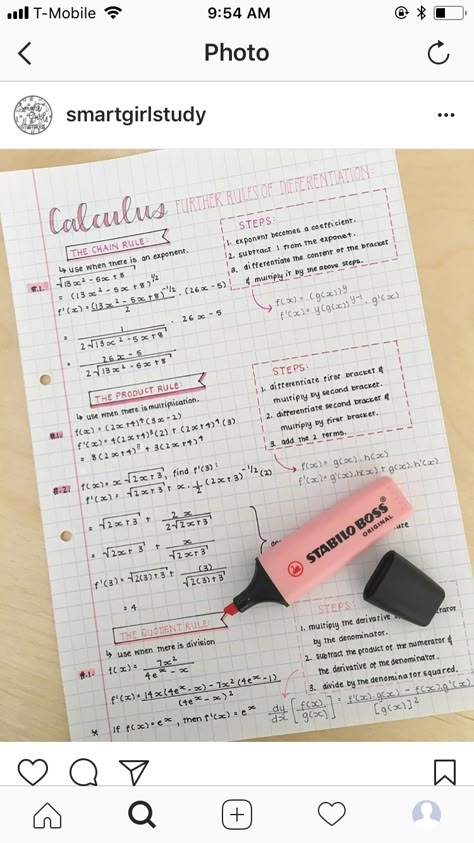 T-Mobile
9:54 AM
Photo
smartgirlstudy
Calculus FURTHER RULES OF DIFFERENTIATION:
THE CHAIN RULE:
↳ use when there is an exponent.
#.1. √13x² - 5x + 8
= (13x² - 5x + 8)^1/2
f'(x) = (13x² - 5x + 8)^-1/2 / 2 · (26x - 5)
= 1 / 2√13x² - 5x + 8 · 26x - 5
= 26x - 5 / 2√13x² - 5x + 8
STEPS:
1. exponent becomes a coefficient.
2. subtract 1 from the exponent.
3. differentiate the content of the bracket
& multiply it by the above steps.
f(x) = (g(x))^y
f'(x) = y(g(x))^y-1 · g'(x)
THE PRODUCT RULE:
↳ use when there is multiplication.
#1. f(x) = (2x+4)⁴(3x-2)
f'(x) = 4(2x+4)³(2) + (2x+4)⁴(3)
= 8(2x+4)³ + 3(2x+4)⁴
#.2. f(x) = x√2x+3, find f'(3):
f'(x) = √2x+3 + x · 1/2 (2x+3)^-1/2 (2)
= √2x+3 + 2x / 2√2x+3
= √2x+3 + x / √2x+3
f'(3) = √2(3)+3 + (3) / √2(3)+3
= 4
STEPS:
1. differentiate first bracket &
multiply by second bracket.
2. differentiate second bracket &
multiply by first bracket.
3. add the 2 terms.
f(x) = g(x) · h(x)
f'(x) = g'(x) · h(x) + g(x) · h'(x)
STABILO BOSS
ORIGINAL
THE QUOTIENT RULE:
↳ use when there is division
#.1. f(x) = 7x² / 4eˣ - x
f'(x) = 14x(4eˣ - x) - 7x²(4eˣ - 1) / (4eˣ - x)²
* If f(x) = eˣ, then f'(x) = eˣ
STEPS:
1. multiply the derivative
by the denominator.
2. subtract the product of the numerator &
the derivative of the denominator.
3. divide by the denominator squared.
dy/dx [f(x)/g(x)] = f'(x) · g(x) - f(x) · g'(x) / [g(x)]²